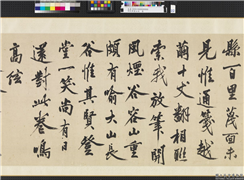 縣百里面未
見惟通箋越
繭十丈相
索我放筆開
風煙谷容山重
頗有喻大山長
谷惟其賢登
堂一笑尚有日
還對此卷鳴
高絃